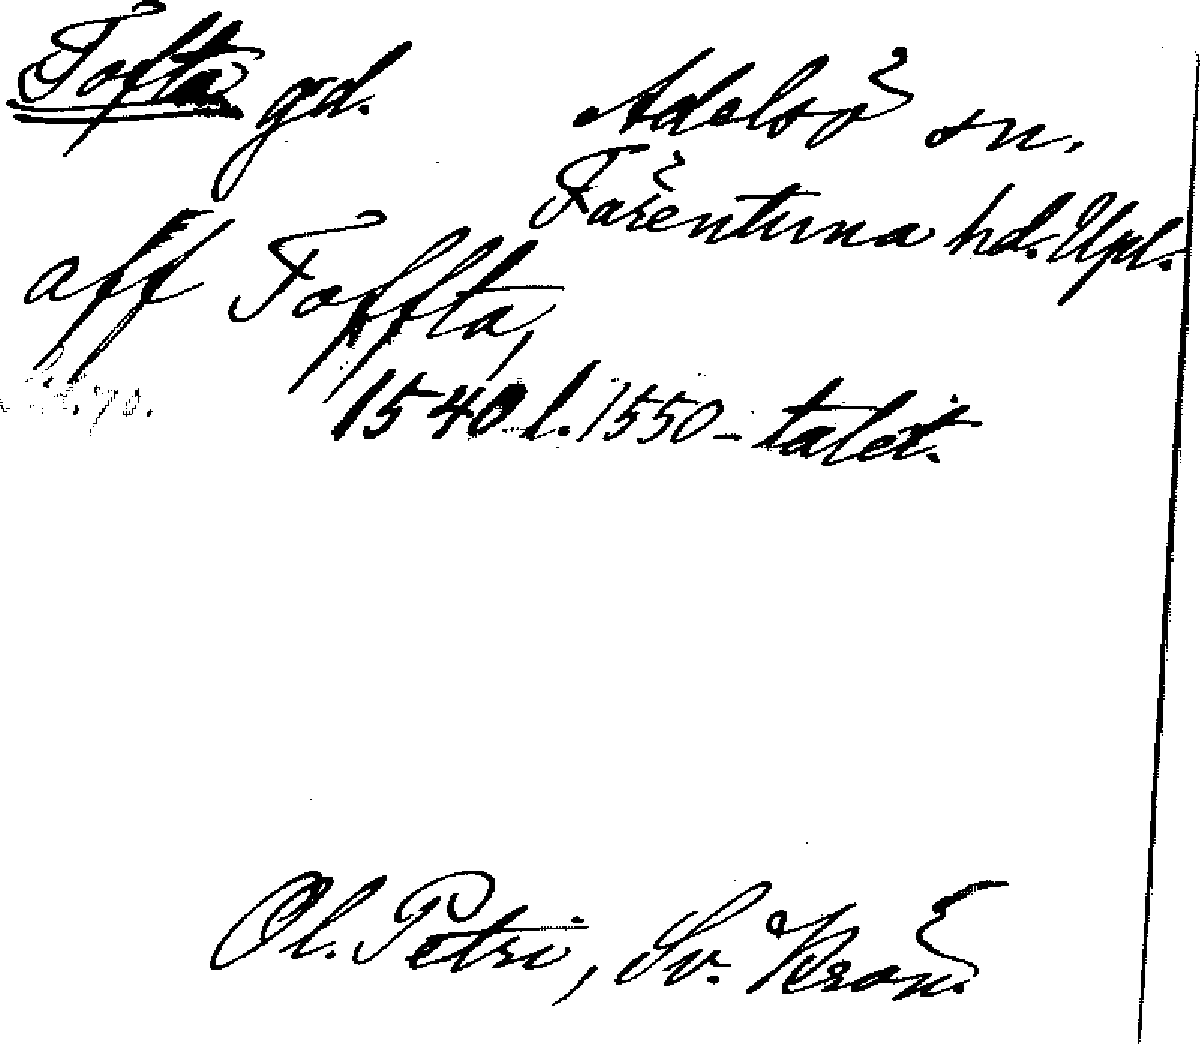 Tofta gd. Adelsö sn.
Färentuna hd. Upl.
aff Toffta,
1540 l. 1550-talet.
Ol. Petri, Sv. Krön.